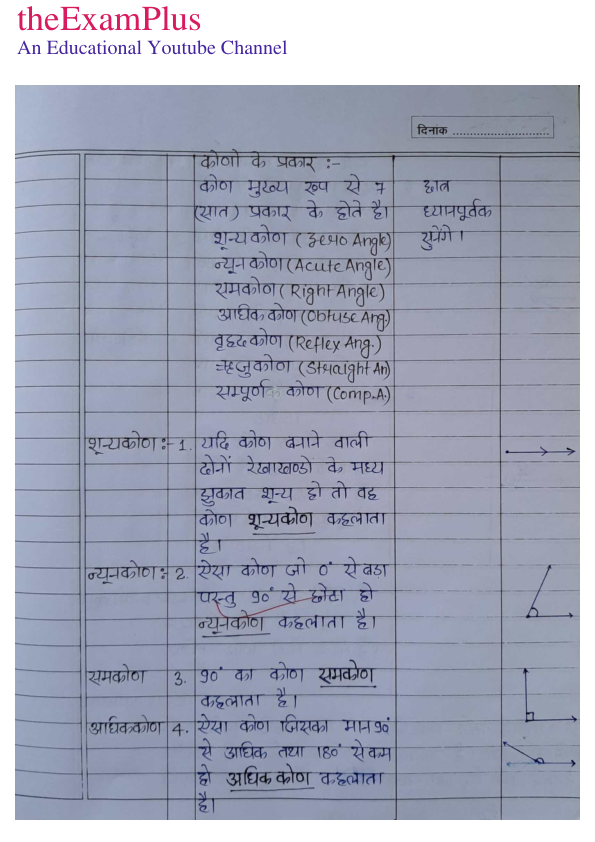 theExamPlus
An Educational Youtube Channel
दिनांक ............................
कोणों के प्रकार :-
कोण मुख्य रूप से 7
(सात) प्रकार के होते है।
छात्र
ध्यानपूर्वक
सुनेंगे।
शून्यकोण (Zero Angle)
न्यून कोण (Acute Angle)
समकोण (Right Angle)
अधिक कोण (Obtuse Ang.)
वृहद कोण (Reflex Ang.)
ऋजुकोण (Straight An)
सम्पूर्ण कोण (Comp.A.)
शून्यकोण :- 1. यदि कोण बनाने वाली
दोनों रेखाखण्डो के मध्य
झुकाव शून्य हो तो वह
कोण शून्यकोण कहलाता
है।
न्यूनकोण : 2. ऐसा कोण जो 0° से बडा
परन्तु 90° से छोटा हो
न्यूनकोण कहलाता है।
समकोण 3. 90° का कोण समकोण
कहलाता है।
अधिककोण 4. ऐसा कोण जिसका मान 90°
से अधिक तथा 180° से कम
हो अधिक कोण कहलाता
है।